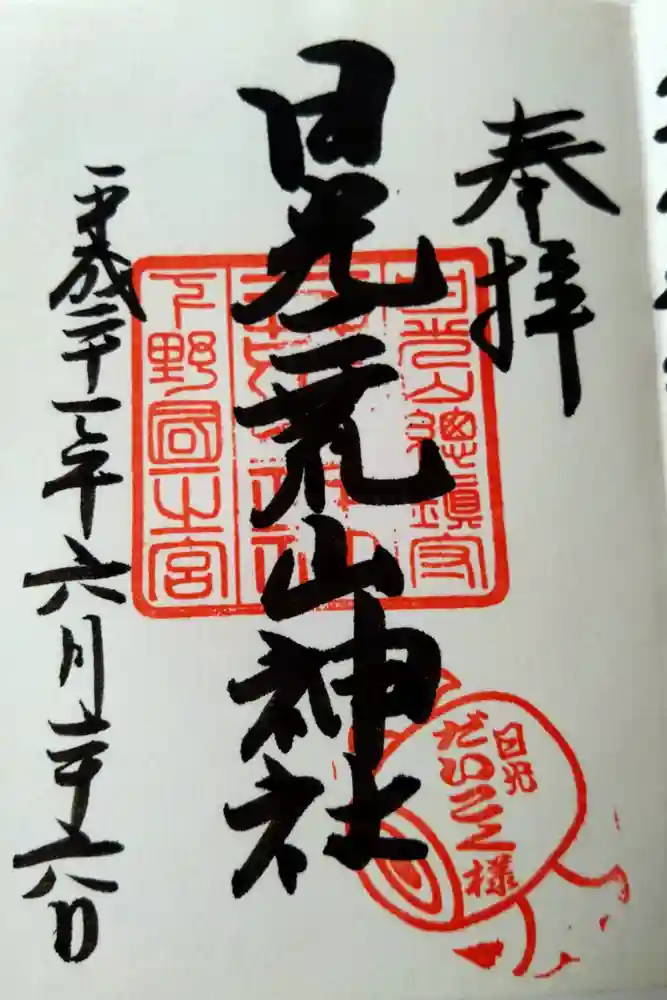 奉拝
日光山總鎮守
日光二荒山神社
下野國一之宮
平成二十一年六月二十六日
日光
だいこく様